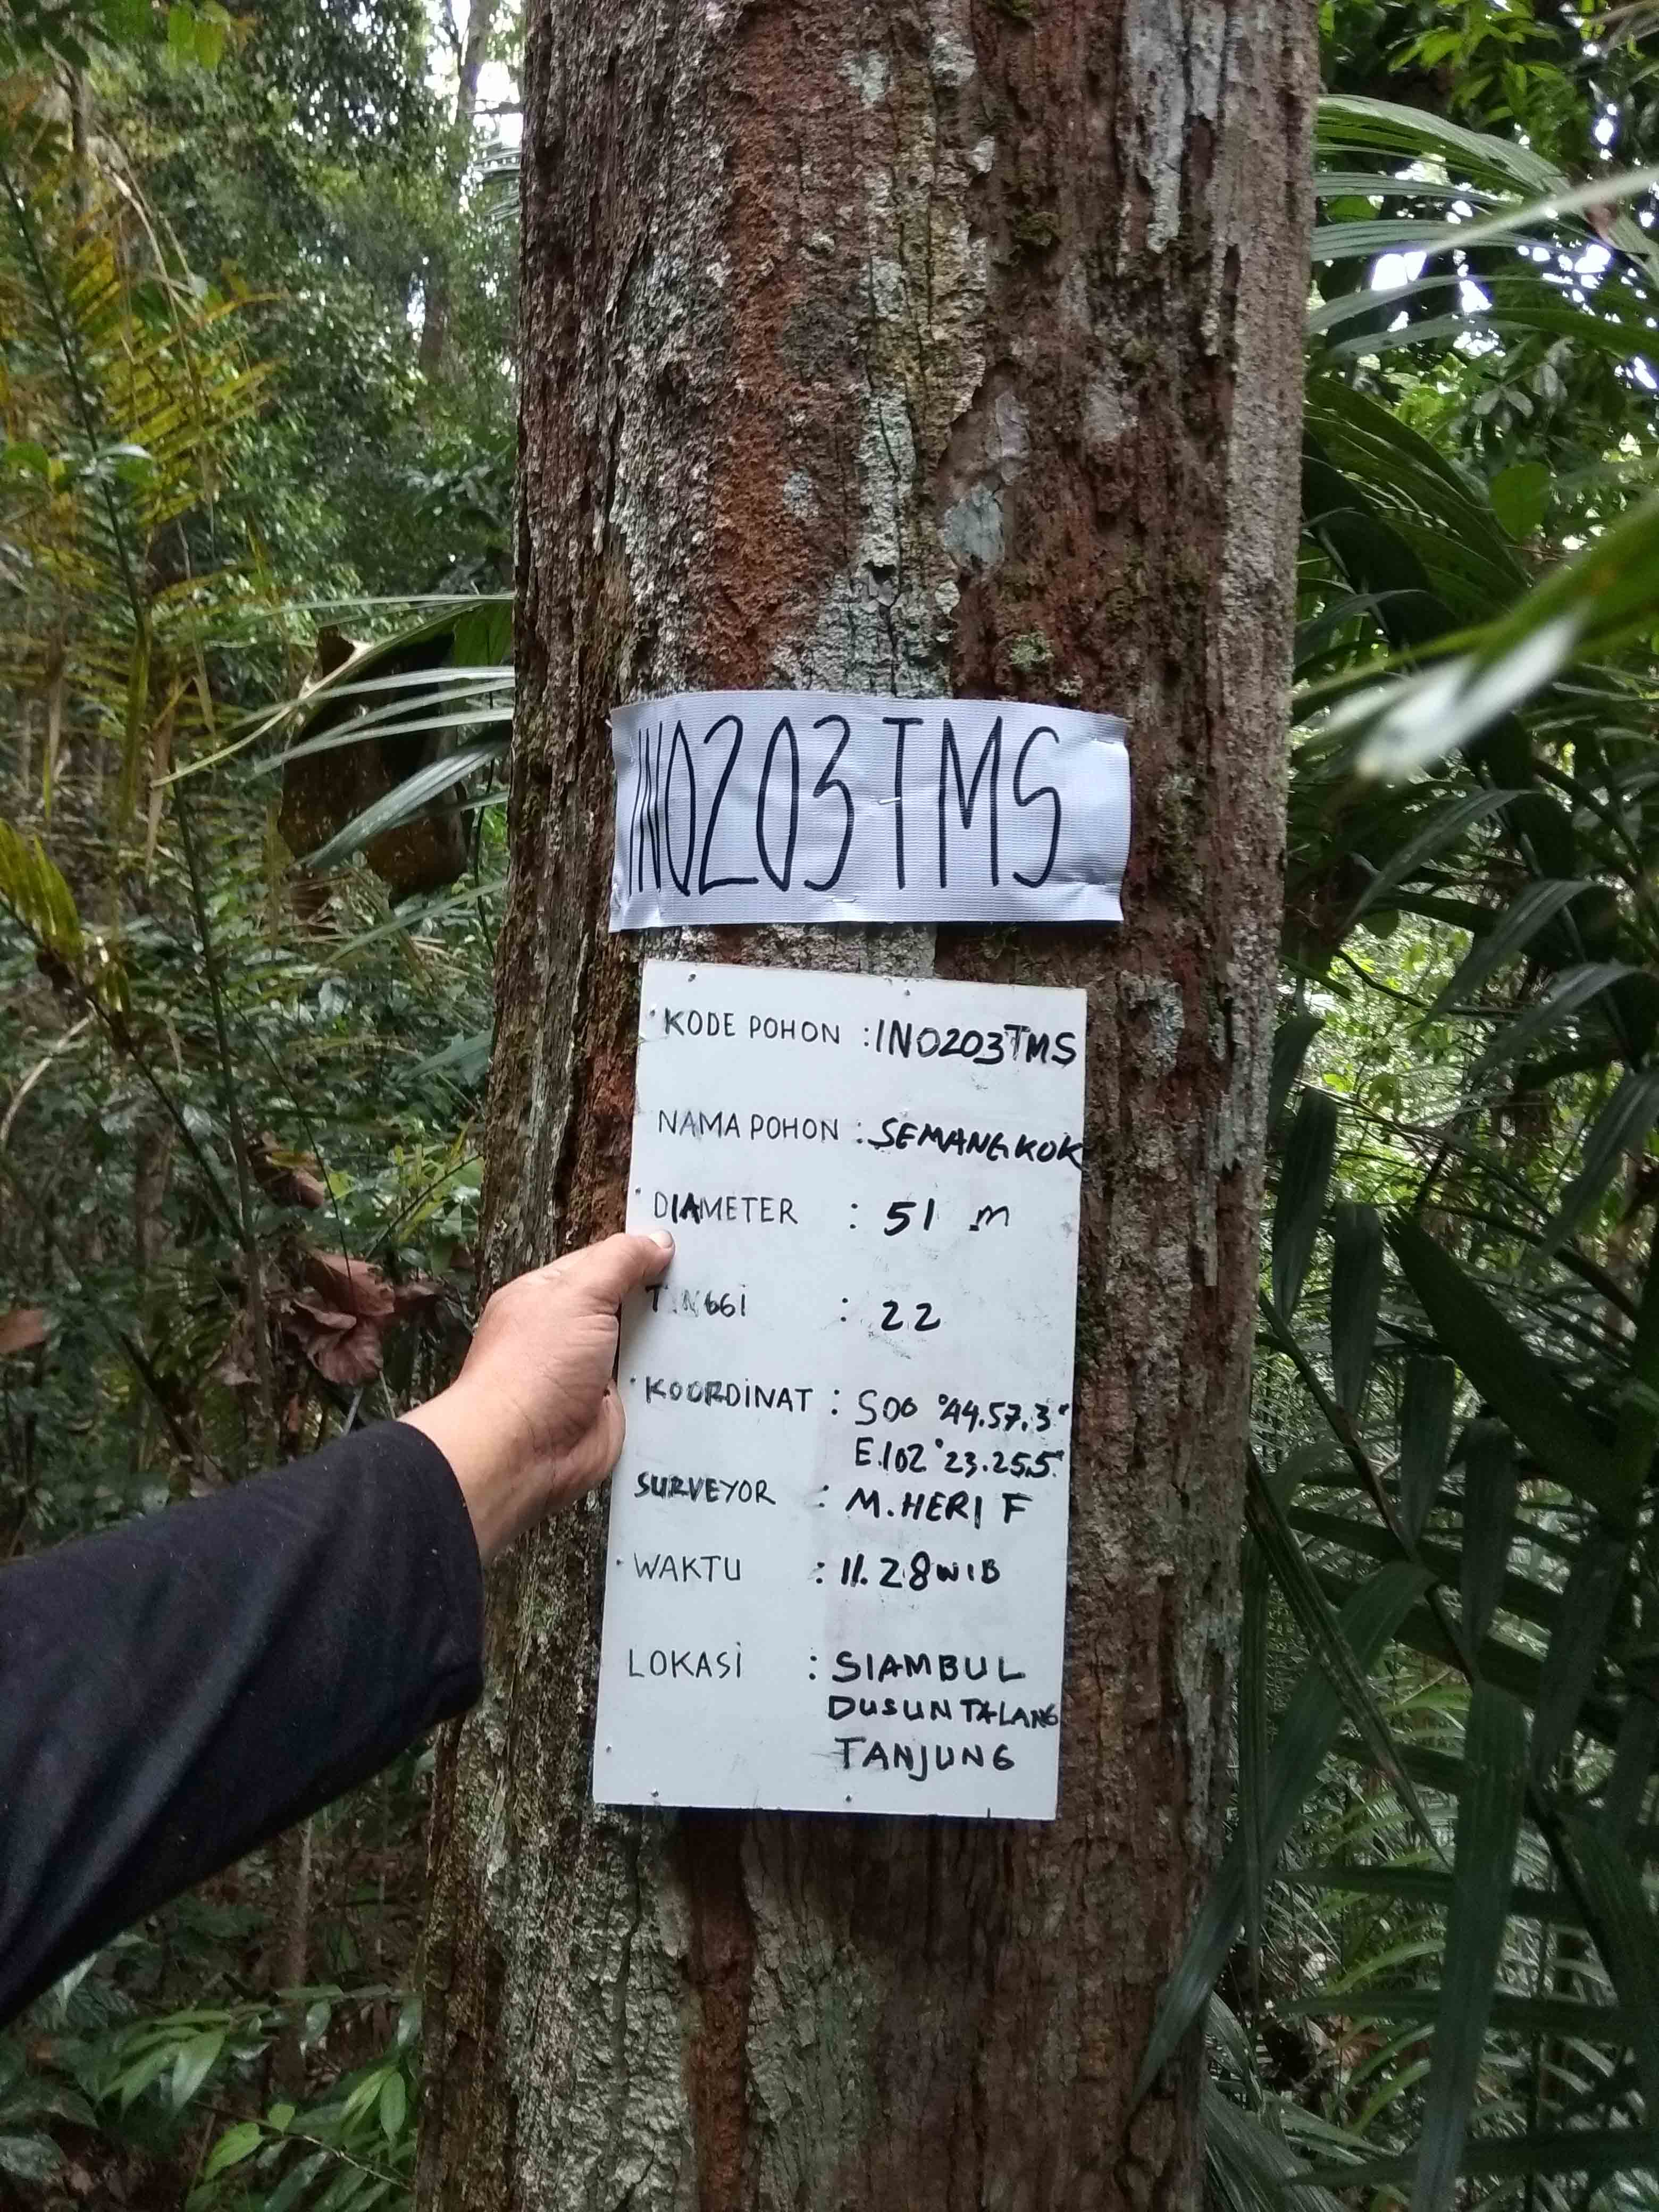 IN0203TMS
KODE POHON : IN0203TMS
NAMA POHON : SEMANGKOK
DIAMETER : 51 m
TINGGI : 22
KOORDINAT : S00 °44.57.3"
E.102°23.25.5"
SURVEYOR : M.HERI F
WAKTU : 11.28 WIB
LOKASI : SIAMBUL
DUSUN TALANG
TANJUNG